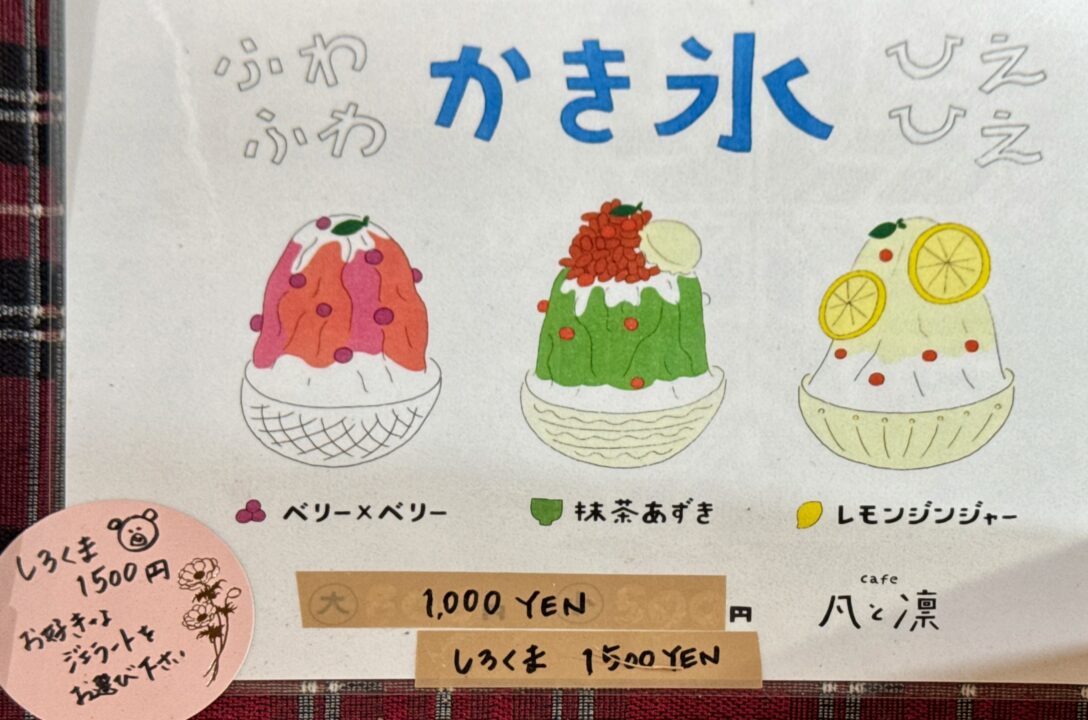 ふわ
ふわ
かき氷
ひえ
ひえ
ベリー×ベリー
抹茶あずき
レモンジンジャー
しろくま
1500円
お好きな
ジェラートを
お選び下さい
大
1,000 YEN
円
しろくま 1500 YEN
cafe
凡と凛